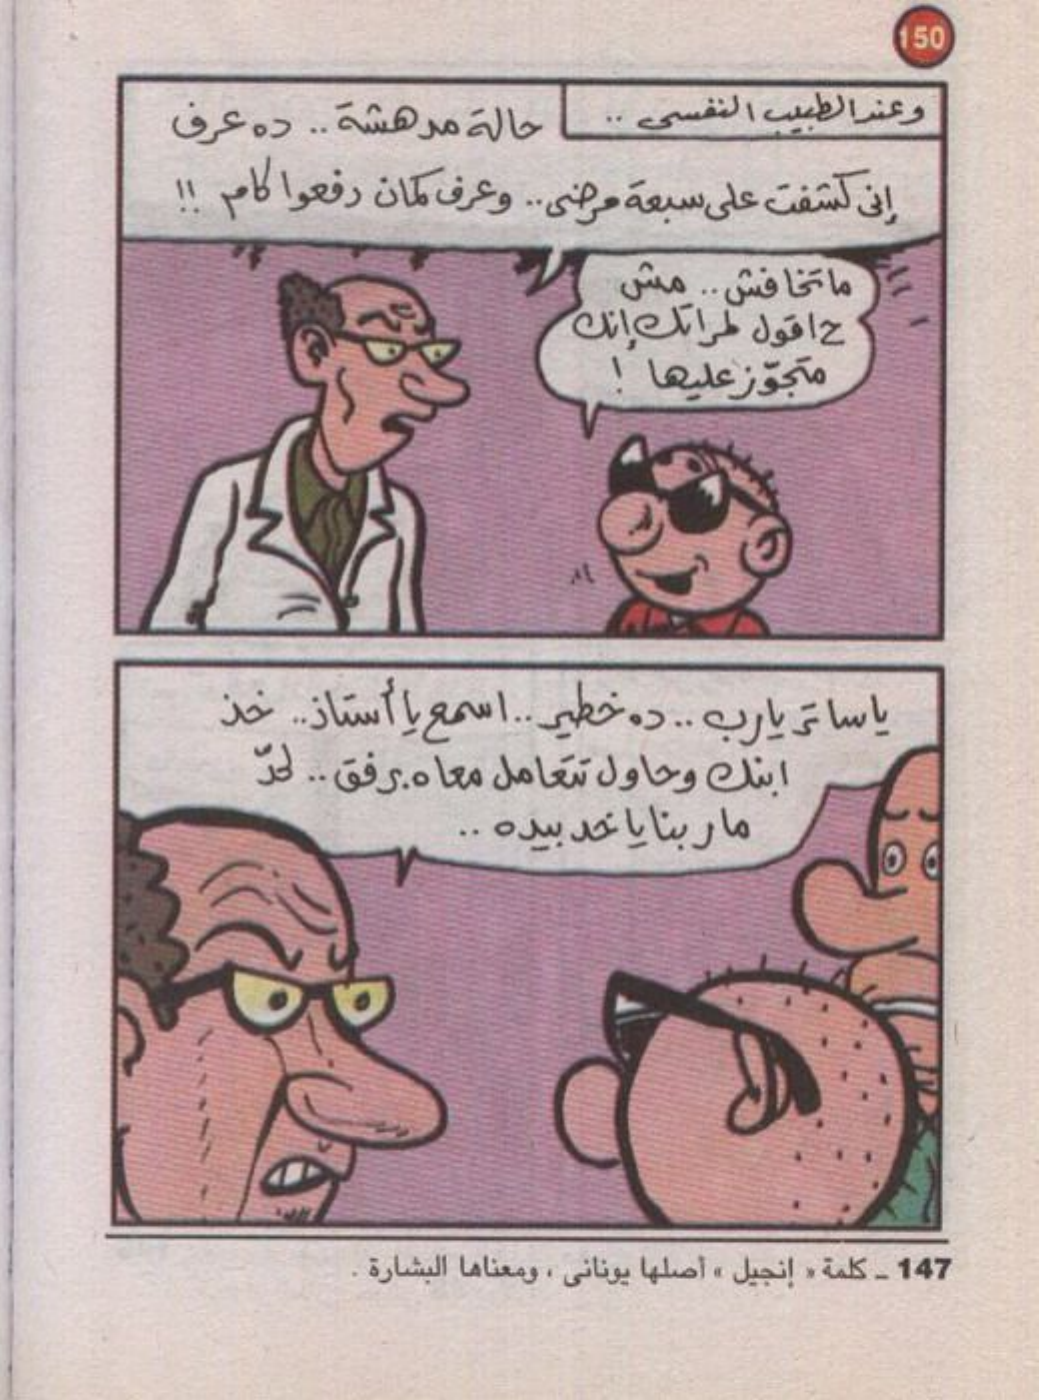 150
وعند الطبيب النفسى ..
حالة مدهشة .. ده عرف
إنى كشفت على سبعة مرضى .. وعرف كمان دفعوا كام !!
ماتخافش .. مش
حاقول لمراتك إنك
متجوّز عليها !
ياساتر يارب .. ده خطير .. اسمع يا أستاذ .. خذ
ابنك وحاول تتعامل معاه برفق .. لحدّ
ما ربنا ياخد بيده ..
147 ـ كلمة « إنجيل » أصلها يونانى ، ومعناها البشارة .